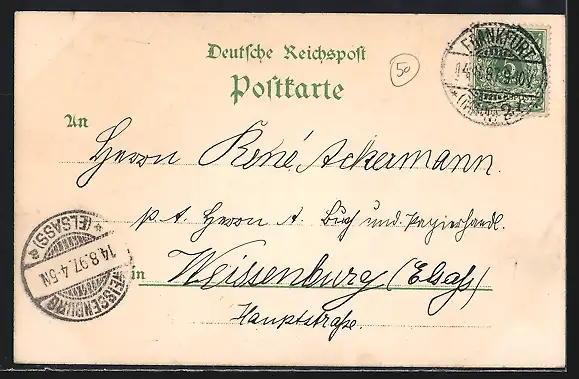 Deutsche Reichspost
50
Postkarte
FRANKFURT
14.8.97. 9-10V.
An
Herrn René Ackermann.
p A. Herrn A Buch und Papierhandl.
(ELSASS)
14.8.97.4-5N
WEISSENBURG
in Weissenburg (Elsaß)
Hauptstraße.